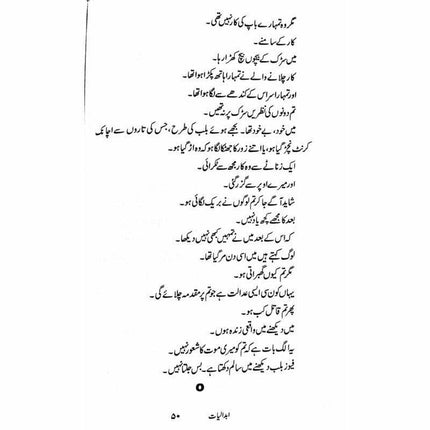 مگر وہ تمہارے باپ کی کار نہیں تھی۔
کار کے سامنے۔
میں سڑک کے بیچوں بیچ کھڑا رہا۔
کار چلانے والے نے تمہارا ہاتھ پکڑا ہوا تھا۔
اور تمہارا سر اس کے کندھے سے لگا ہوا تھا۔
تم دونوں کی نظریں سڑک پر نہ تھیں۔
میں خود، بے خود تھا۔ بجھے ہوئے بلب کی طرح، جس کی تاروں سے اچانک
کرنٹ نچڑ گیا ہو، یا اتنے زور کا جھٹکا لگا ہو کہ وہ اڑ گیا ہو۔
ایک زناٹے سے وہ کار مجھ سے ٹکرائی۔
اور میرے اوپر سے گزر گئی۔
شاید آگے جا کر تم لوگوں نے بریک لگائی ہو۔
بعد کا مجھے کچھ یاد نہیں۔
کہ اس کے بعد میں نے تمہیں کبھی نہیں دیکھا۔
لوگ کہتے ہیں میں اسی دن مر گیا تھا۔
مگر تم کیوں گھبراتی ہو۔
یہاں کون سی ایسی عدالت ہے جو تم پر مقدمہ چلائے گی۔
پھر تم قاتل کب ہو۔
میں دیکھنے میں واقعی زندہ ہوں۔
یہ الگ بات ہے کہ تم کو میری موت کا شعور نہیں۔
فیوز بلب دیکھنے میں سالم دکھتا ہے۔ بس جلتا نہیں۔
۵۰ ابدالیات